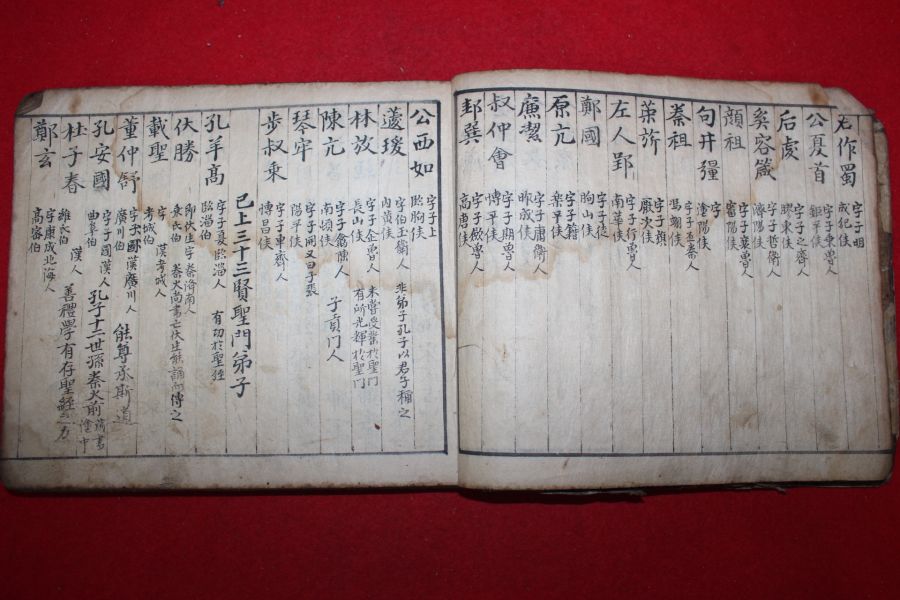 石作蜀 字子明 成紀侯
公夏首 字子乘魯人 鉅平侯
后處 字子之齊人 膠東侯
奚容箴 字子哲衛人 濟陽侯
顔祖 字子襄魯人 富陽侯
句井疆 字 滏陽侯
秦祖 字子丕秦人 鄠翊侯
榮旂 字子祺 厭次侯
左人郢 字子行魯人 南華侯
鄭國 字子徒 朐山侯
原亢 字子籍 樂平侯
廉潔 字子庸衛人 胙成侯
叔仲會 字子期魯人 博平侯
邽巽 字子斂魯人 高唐侯
公西如 字子上 臨朐侯
蘧瑗 字伯玉衛人 內黃侯 非弟子孔子以君子稱之
林放 字子企魯人 長山侯 未嘗受業於聖門 有所光輝於聖門
陳亢 字子禽陳人 南頓侯 子貢門人
琴牢 字子開又曰子張 陽平侯
步叔乘 字子車齊人 博昌侯
已上三十三賢聖門弟子
孔羊高 字子夏臨淄人 臨淄伯 有功於聖經
伏勝 卽伏生字 秦濟南人 乘氏伯 秦火尚書亡伏生能誦而傳之
戴聖 字 漢考城人 考城伯
董仲舒 字 漢廣川人 廣川伯 能尊承斯道
孔安國 字子國漢人 曲阜伯 孔子十二世孫秦火前 藏書
杜子春 漢人 緱氏伯 善禮學有存聖經之功
鄭玄 字康成北海人 高密伯